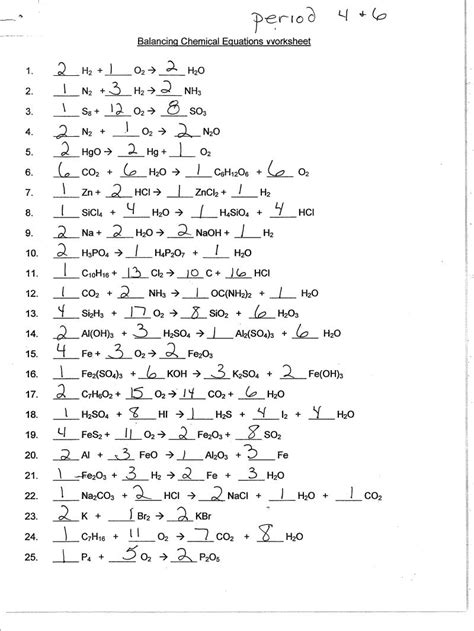 period 4 + 6
Balancing Chemical Equations vvorksheet
1. 2 H2 + 1 O2 → 2 H2O
2. 1 N2 + 3 H2 → 2 NH3
3. 1 S8 + 12 O2 → 8 SO3
4. 2 N2 + 1 O2 → 2 N2O
5. 2 HgO → 2 Hg + 1 O2
6. 6 CO2 + 6 H2O → 1 C6H12O6 + 6 O2
7. 1 Zn + 2 HCl → 1 ZnCl2 + 1 H2
8. 1 SiCl4 + 4 H2O → 1 H4SiO4 + 4 HCl
9. 2 Na + 2 H2O → 2 NaOH + 1 H2
10. 2 H3PO4 → 1 H4P2O7 + 1 H2O
11. 1 C10H16 + 13 Cl2 → 10 C + 16 HCl
12. 1 CO2 + 2 NH3 → 1 OC(NH2)2 + 1 H2O
13. 4 Si2H3 + 17 O2 → 8 SiO2 + 6 H2O3
14. 2 Al(OH)3 + 3 H2SO4 → 1 Al2(SO4)3 + 6 H2O
15. 4 Fe + 3 O2 → 2 Fe2O3
16. 1 Fe2(SO4)3 + 6 KOH → 3 K2SO4 + 2 Fe(OH)3
17. 2 C7H6O2 + 15 O2 → 14 CO2 + 6 H2O
18. 1 H2SO4 + 8 HI → 1 H2S + 4 I2 + 4 H2O
19. 4 FeS2 + 11 O2 → 2 Fe2O3 + 8 SO2
20. 2 Al + 3 FeO → 1 Al2O3 + 3 Fe
21. 1 Fe2O3 + 3 H2 → 2 Fe + 3 H2O
22. 1 Na2CO3 + 2 HCl → 2 NaCl + 1 H2O + 1 CO2
23. 2 K + 1 Br2 → 2 KBr
24. 1 C7H16 + 11 O2 → 7 CO2 + 8 H2O
25. 1 P4 + 5 O2 → 2 P2O5